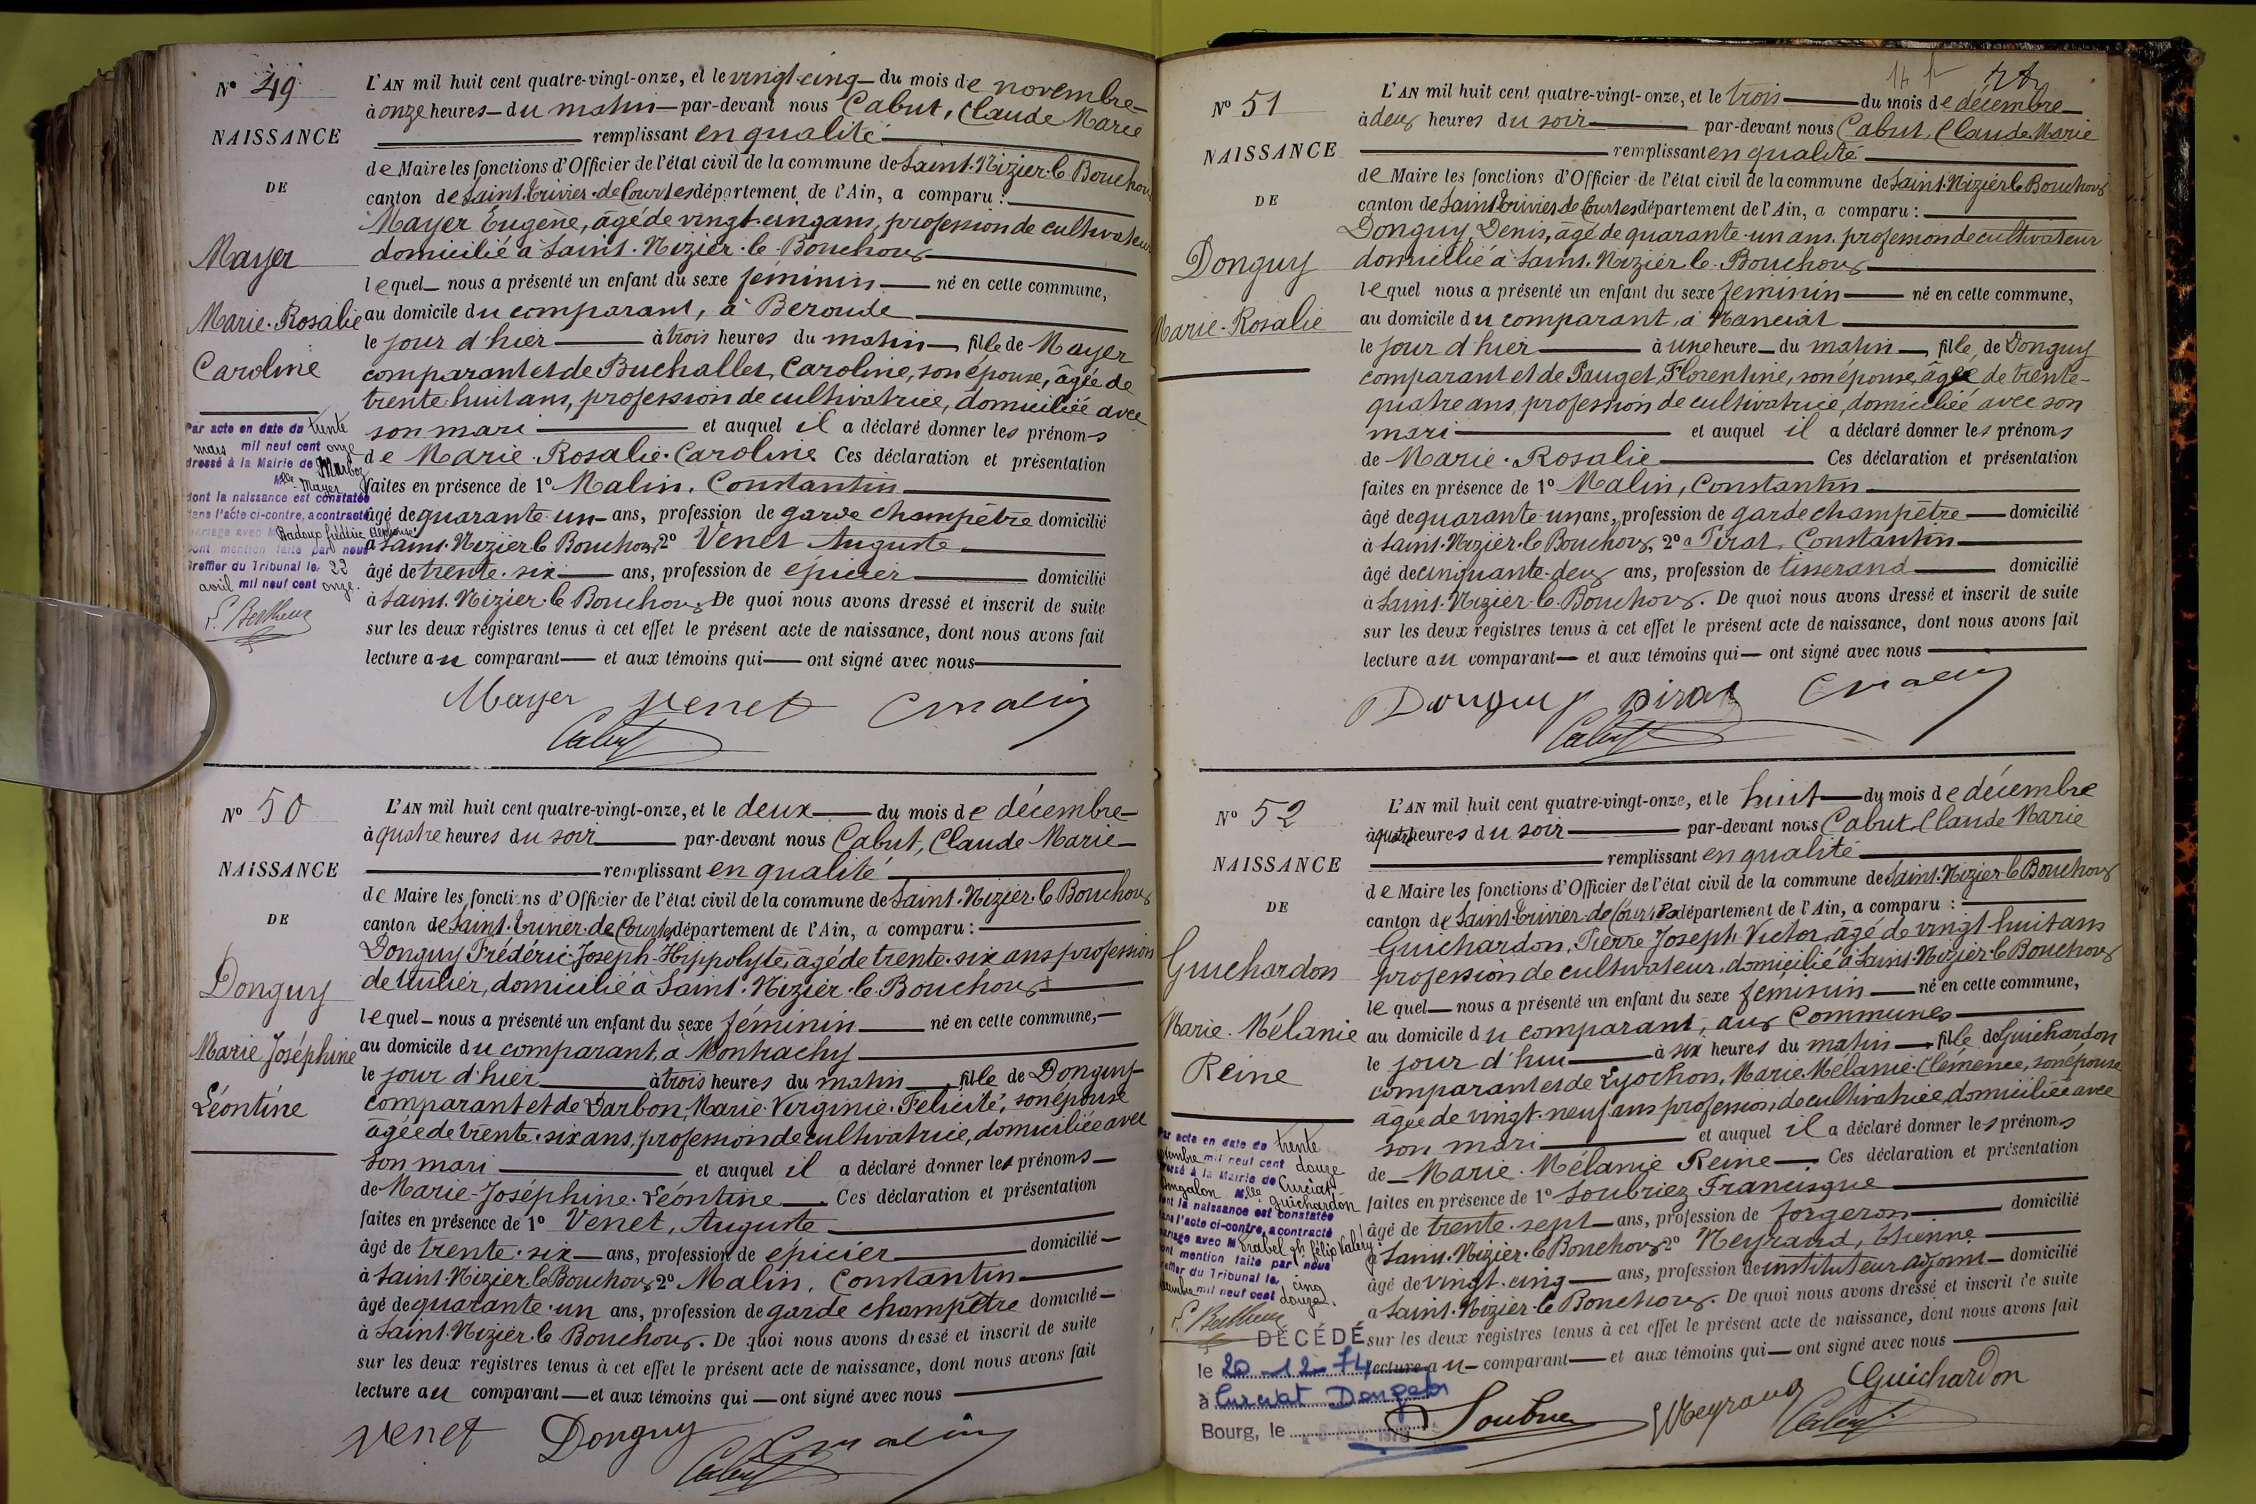 N° 49
NAISSANCE
DE
Mayer
Marie-Rosalie
Caroline
Par acte en date du trente
mars mil neuf cent onze
dressé à la Mairie de Marboz
Mlle Mayer
dont la naissance est constatée
dans l'acte ci-contre, a contracté
mariage avec M Badoux frédéric
dont mention faite par nous
Greffier du Tribunal le 22
avril mil neuf cent onze.
L'AN mil huit cent quatre-vingt-onze, et le vingt-cinq du mois de novembre
à onze heures du matin par-devant nous Cabut, Claude Marie
remplissant en qualité
de Maire les fonctions d'Officier de l'état civil de la commune de Saint-Nizier-le Bouchoux
canton de Saint-Trivier-de Courtes département de l'Ain, a comparu :
Mayer Eugène, âgé de vingt-cinq ans, profession de cultivateur
domicilié à Saint-Nizier-le-Bouchoux
lequel nous a présenté un enfant du sexe féminin né en cette commune,
au domicile du comparant, à Beroude
le jour d'hier à trois heures du matin, fille de Mayer
comparant et de Buchallet, Caroline, son épouse, âgée de
trente huit ans, profession de cultivatrice, domiciliée avec
son mari et auquel il a déclaré donner les prénoms
de Marie-Rosalie-Caroline Ces déclaration et présentation
faites en présence de 1° Malin, Constantin
âgé de quarante-un ans, profession de garde champêtre domicilié
à Saint-Nizier-le Bouchoux 2° Venet Auguste
âgé de trente-six ans, profession de épicier domicilié
à Saint-Nizier-le Bouchoux De quoi nous avons dressé et inscrit de suite
sur les deux registres tenus à cet effet le présent acte de naissance, dont nous avons fait
lecture au comparant et aux témoins qui ont signé avec nous
Mayer Venet Cmalin
Cabut
N° 50
NAISSANCE
DE
Donguy
Marie Joséphine
Léontine
L'AN mil huit cent quatre-vingt-onze, et le deux du mois de décembre
à quatre heures du soir par-devant nous Cabut, Claude Marie
remplissant en qualité
de Maire les fonctions d'Officier de l'état civil de la commune de Saint-Nizier-le Bouchoux
canton de Saint-Trivier-de Courtes département de l'Ain, a comparu :
Donguy Frédéric-Joseph-Hippolyte, âgé de trente-six ans profession
de tuilier, domicilié à Saint-Nizier-le-Bouchoux
lequel nous a présenté un enfant du sexe féminin né en cette commune,
au domicile du comparant, à Montrachy
le jour d'hier à trois heures du matin, fille de Donguy
comparant et de Darbon, Marie-Virginie-Félicité, son épouse
âgée de trente-six ans, profession de cultivatrice, domiciliée avec
son mari et auquel il a déclaré donner les prénoms
de Marie-Joséphine-Léontine Ces déclaration et présentation
faites en présence de 1° Venet, Auguste
âgé de trente-six ans, profession de épicier domicilié
à Saint-Nizier-le Bouchoux, 2° Malin, Constantin
âgé de quarante-un ans, profession de garde champêtre domicilié
à Saint-Nizier-le Bouchoux. De quoi nous avons dressé et inscrit de suite
sur les deux registres tenus à cet effet le présent acte de naissance, dont nous avons fait
lecture au comparant et aux témoins qui ont signé avec nous
Venet Donguy Cmalin
Cabut
N° 51
NAISSANCE
DE
Donguy
Marie-Rosalie
L'AN mil huit cent quatre-vingt-onze, et le trois du mois de décembre
à deux heures du soir par-devant nous Cabut, Claude-Marie
remplissant en qualité
de Maire les fonctions d'Officier de l'état civil de la commune de Saint-Nizier-le Bouchoux
canton de Saint-Trivier-de Courtes département de l'Ain, a comparu :
Donguy, Denis, âgé de quarante-un ans, profession de cultivateur
domicilié à Saint-Nizier-le-Bouchoux
lequel nous a présenté un enfant du sexe féminin né en cette commune,
au domicile du comparant, à Manciat
le jour d'hier à une heure du matin, fille de Donguy
comparant et de Pauget, Florentine, son épouse, âgée de trente-
quatre ans, profession de cultivatrice, domiciliée avec son
mari et auquel il a déclaré donner les prénoms
de Marie-Rosalie Ces déclaration et présentation
faites en présence de 1° Malin, Constantin
âgé de quarante-un ans, profession de garde champêtre domicilié
à Saint-Nizier-le Bouchoux, 2° Pirat, Constantin
âgé de cinquante-deux ans, profession de tisserand domicilié
à Saint-Nizier-le-Bouchoux. De quoi nous avons dressé et inscrit de suite
sur les deux registres tenus à cet effet le présent acte de naissance, dont nous avons fait
lecture au comparant et aux témoins qui ont signé avec nous
Donguy pirat Cmalin
Cabut
N° 52
NAISSANCE
DE
Guichardon
Marie-Mélanie
Reine
Par acte en date du trente
mil neuf cent douze
dressé à la Mairie de Curciat
Dongalon Mlle Guichardon
dont la naissance est constatée
dans l'acte ci-contre, a contracté
mariage avec M
dont mention faite par nous
Greffier du Tribunal le cinq
mil neuf cent douze.
DÉCÉDÉ
le 20-12-74
à Curciat Dongalon
Bourg, le
L'AN mil huit cent quatre-vingt-onze, et le huit du mois de décembre
à quatre heures du soir par-devant nous Cabut, Claude Marie
remplissant en qualité
de Maire les fonctions d'Officier de l'état civil de la commune de Saint-Nizier-le Bouchoux
canton de Saint-Trivier-de Courtes département de l'Ain, a comparu :
Guichardon, Pierre Joseph Victor, âgé de vingt-huit ans
profession de cultivateur, domicilié à Saint-Nizier-le Bouchoux
lequel nous a présenté un enfant du sexe féminin né en cette commune,
au domicile du comparant, aux Communes
le jour d'hui à six heures du matin, fille de Guichardon
comparant et de Lyochon, Marie Mélanie-Clémence, son épouse
âgée de vingt-neuf ans profession de cultivatrice, domiciliée avec
son mari et auquel il a déclaré donner les prénoms
de Marie-Mélanie Reine Ces déclaration et présentation
faites en présence de 1° Soubriez Francisque
âgé de trente-sept ans, profession de forgeron domicilié
à Saint-Nizier-le Bouchoux 2° Neyrand, Etienne
âgé de vingt-cinq ans, profession de instituteur adjoint domicilié
à Saint-Nizier-le Bouchoux. De quoi nous avons dressé et inscrit de suite
sur les deux registres tenus à cet effet le présent acte de naissance, dont nous avons fait
lecture au comparant et aux témoins qui ont signé avec nous
Guichardon
Neyrand
Cabut